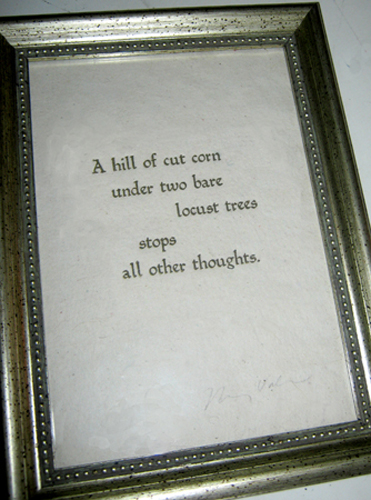 A hill of cut corn
under two bare
locust trees
stops
all other thoughts.